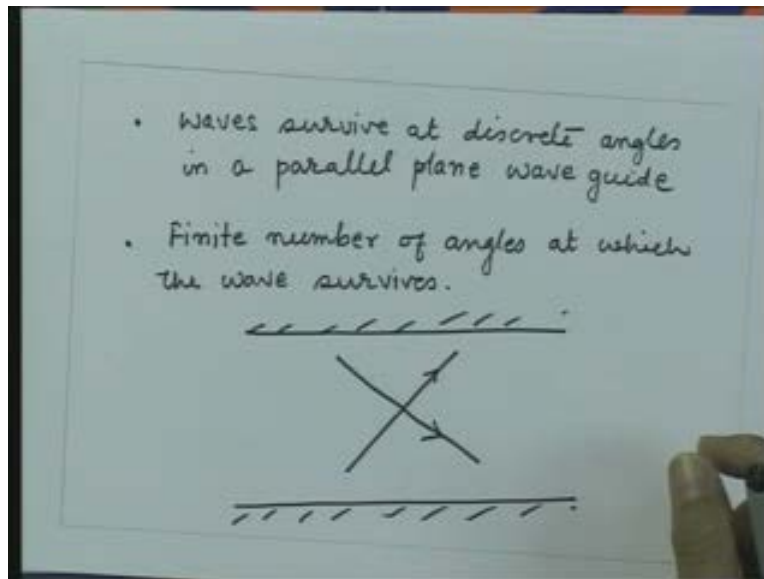 . Waves survive at discrete angles
in a parallel plane wave guide
. Finite number of angles at which
the wave survives.